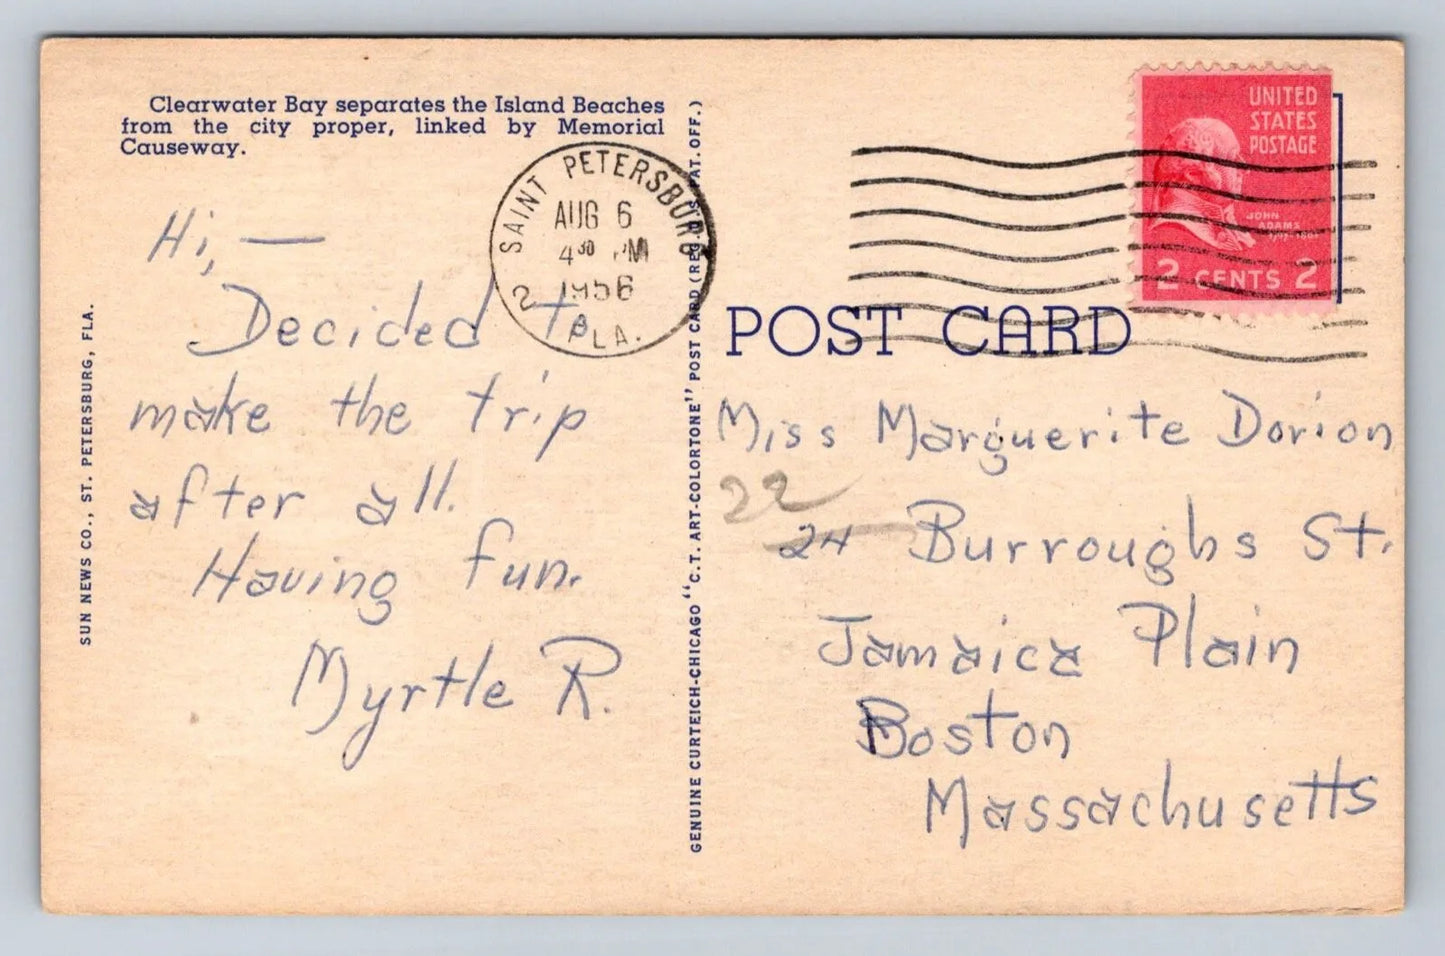 Clearwater Bay separates the Island Beaches
from the city proper, linked by Memorial
Causeway.
SAINT PETERSBURG
AUG 6
4 30 PM
1956
2
FLA.
UNITED
STATES
POSTAGE
JOHN
ADAMS
2 CENTS 2
POST CARD
Hi, —
Decided to
make the trip
after all.
Having fun.
Myrtle R.
SUN NEWS CO., ST. PETERSBURG, FLA.
GENUINE CURTEICH-CHICAGO "C.T. ART-COLORTONE" POST CARD (REG. U.S. PAT. OFF.)
Miss Marguerite Dorion
22
24 Burroughs St.
Jamaica Plain
Boston
Massachusetts